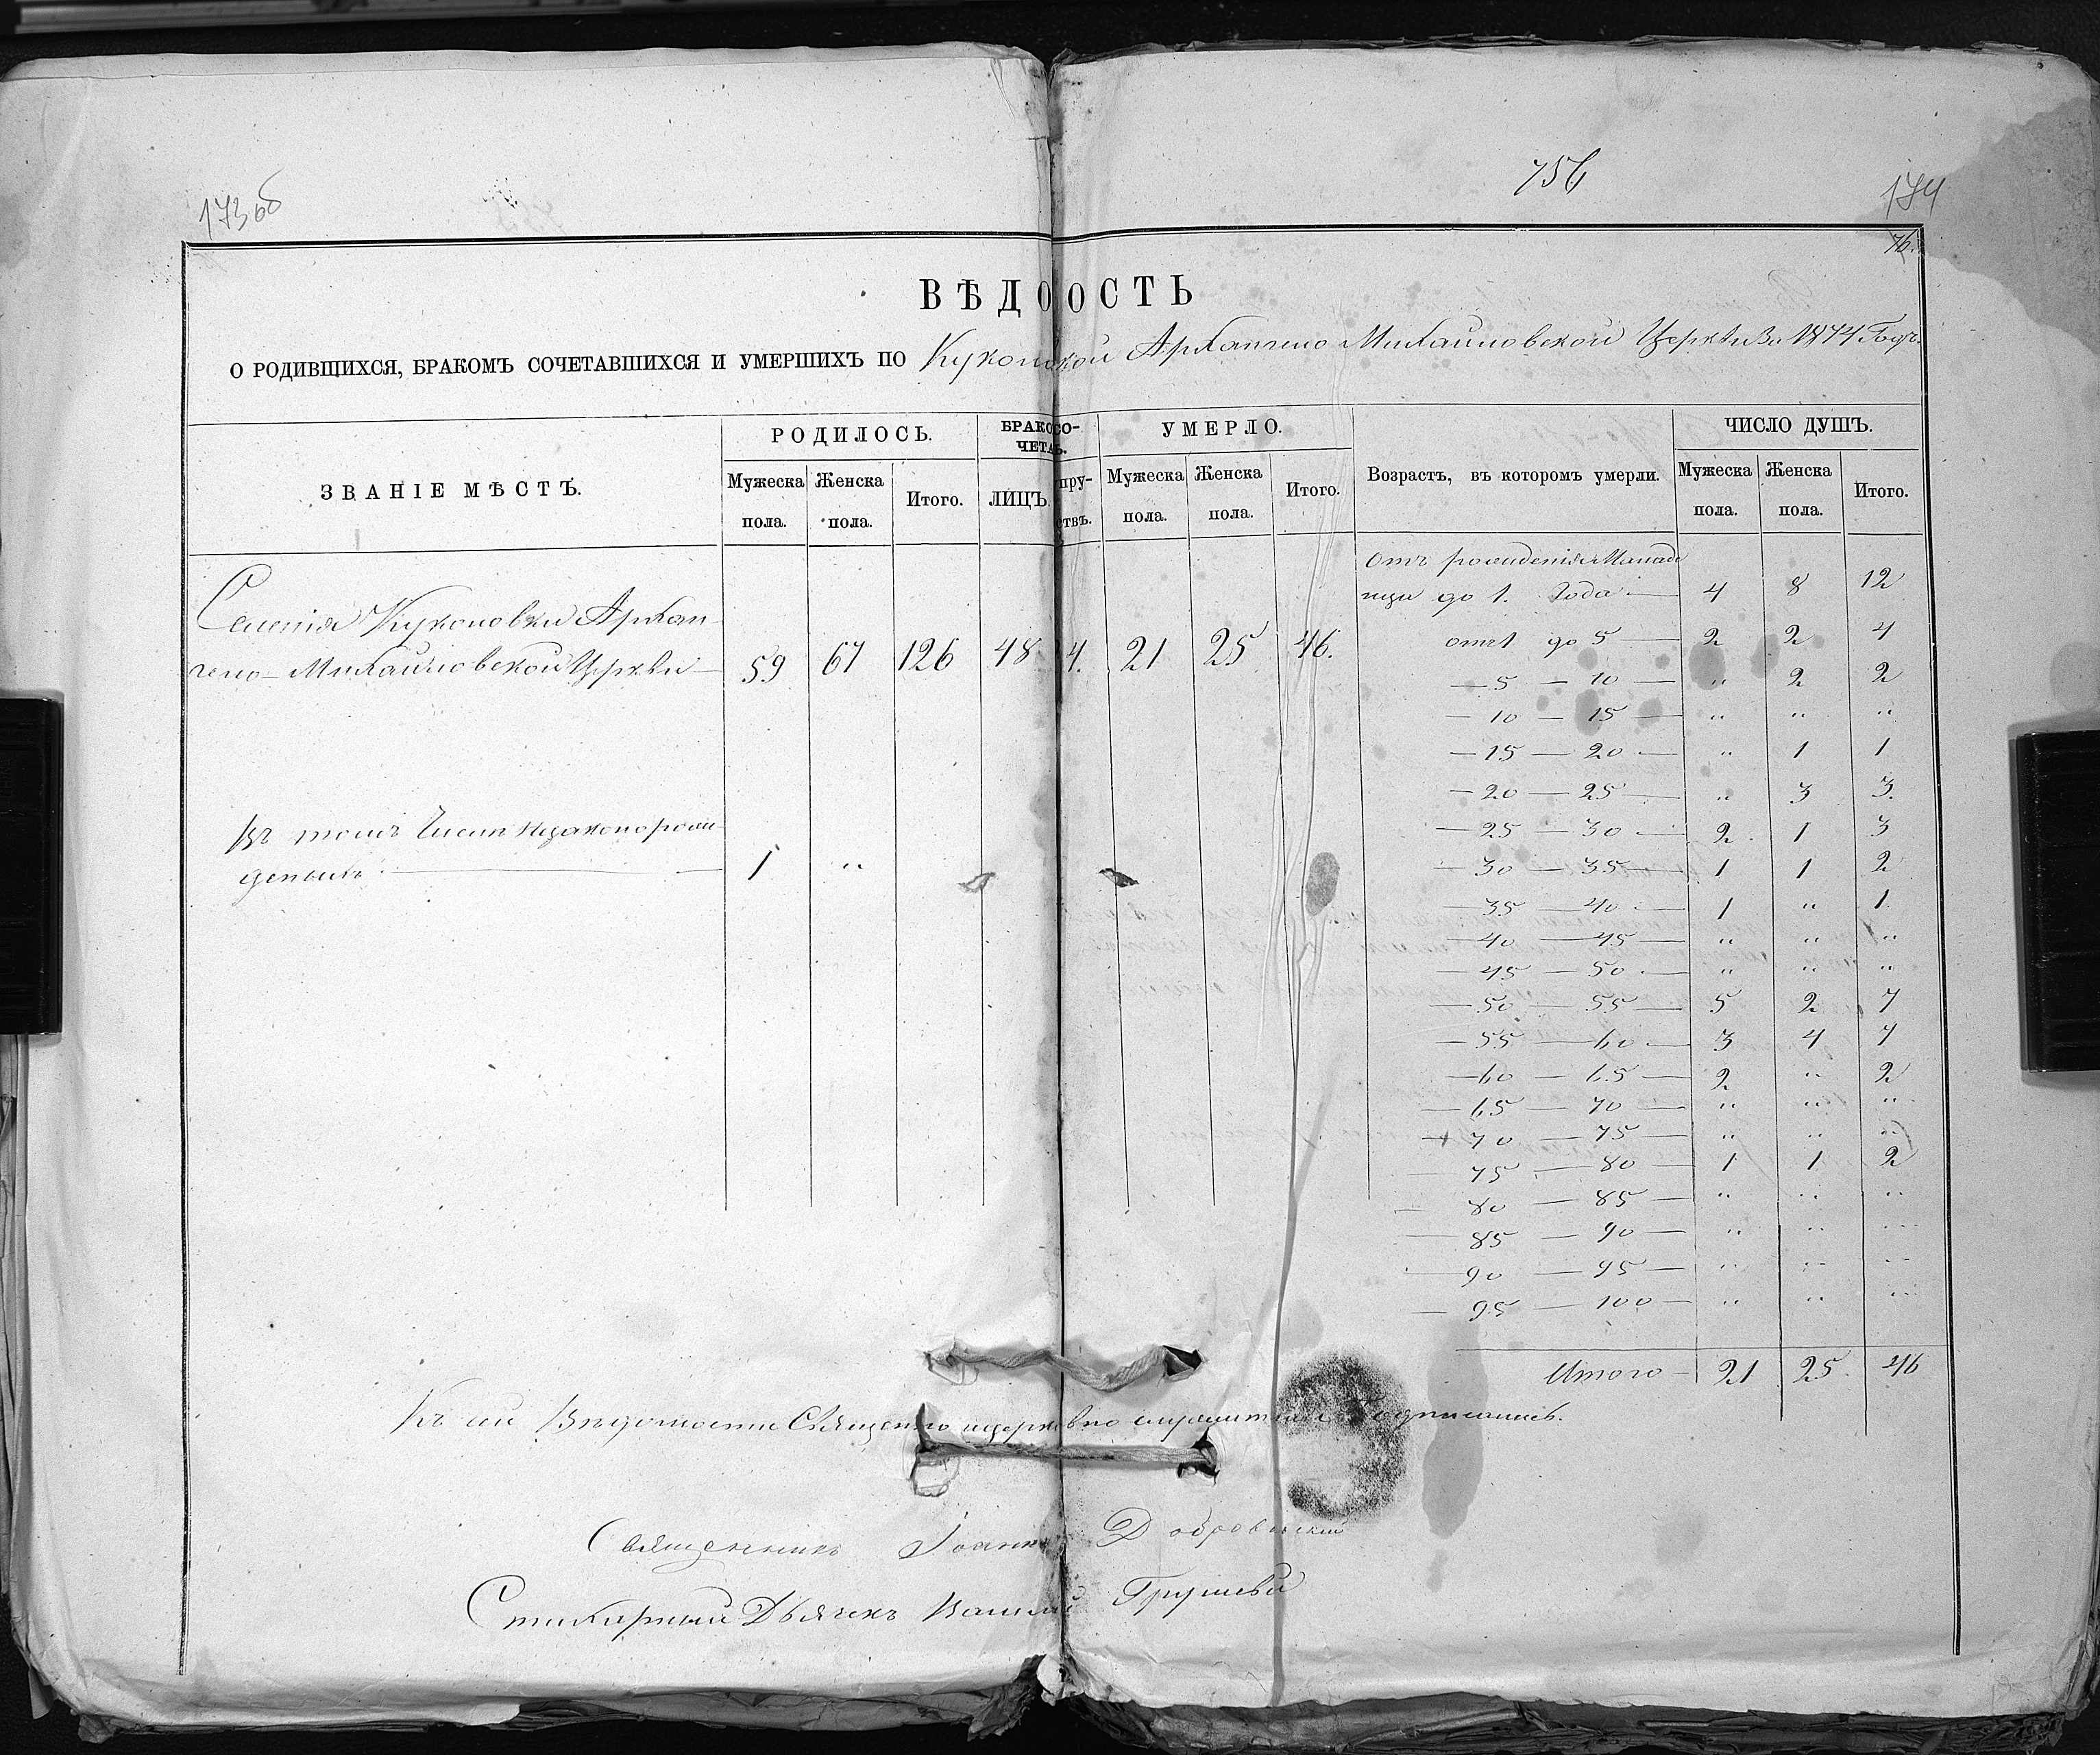 173об
756
174
76.
ВѢДО ОСТЬ
О РОДИВШИХСЯ, БРАКОМЪ СОЧЕТАВШИХСЯ И УМЕРШИХЪ ПО Куконской Архангело Михайловской Церкви За 1874 Годъ
ЗВАНІЕ МѢСТЪ. РОДИЛОСЬ. БРАКО СО- ЧЕТА Ь. УМЕРЛО. Возрастъ, въ которомъ умерли. ЧИСЛО ДУШЪ.
Мужеска пола. Женска пола. Итого. ЛИЦЪ. пру- ствъ. Мужеска пола. Женска пола. Итого. Мужеска пола. Женска пола. Итого.
Отъ рожденія
до 1. Года — 4 8 12
Селенія Куконовки Архан-
гело-Михайловской Церкви — 59 67 126 48 4. 21 25 46.
отъ 1 до 5 — 2 2 4
— 5 — 10 — " 2 2
— 10 — 15 — " " "
— 15 — 20 — " 1 1
— 20 — 25 — " 3 3.
Въ томъ Числѣ незаконорож-
деныхъ — 1 "
— 25 — 30 — 2. 1 3
— 30 — 35 — 1 1 2
— 35 — 40 — 1 " 1
— 40 — 45 — " " "
— 45 — 50 — " " "
— 50 — 55 — 5 2 7
— 55 — 60 — 3 4 7
— 60 — 65 — 2 " 2
— 65 — 70 — " " "
— 70 — 75 — " " "
— 75 — 80 — 1 1 2
— 80 — 85 — " " "
— 85 — 90 — " " "
— 90 — 95 — " " "
— 95 — 100 — " " "
Итого — 21 25 46
Къ сей Вѣдомости Священно и церковно служители Подписались.
Священникъ Іоаннъ Добровольскій
Стихарный Дьячекъ Василій